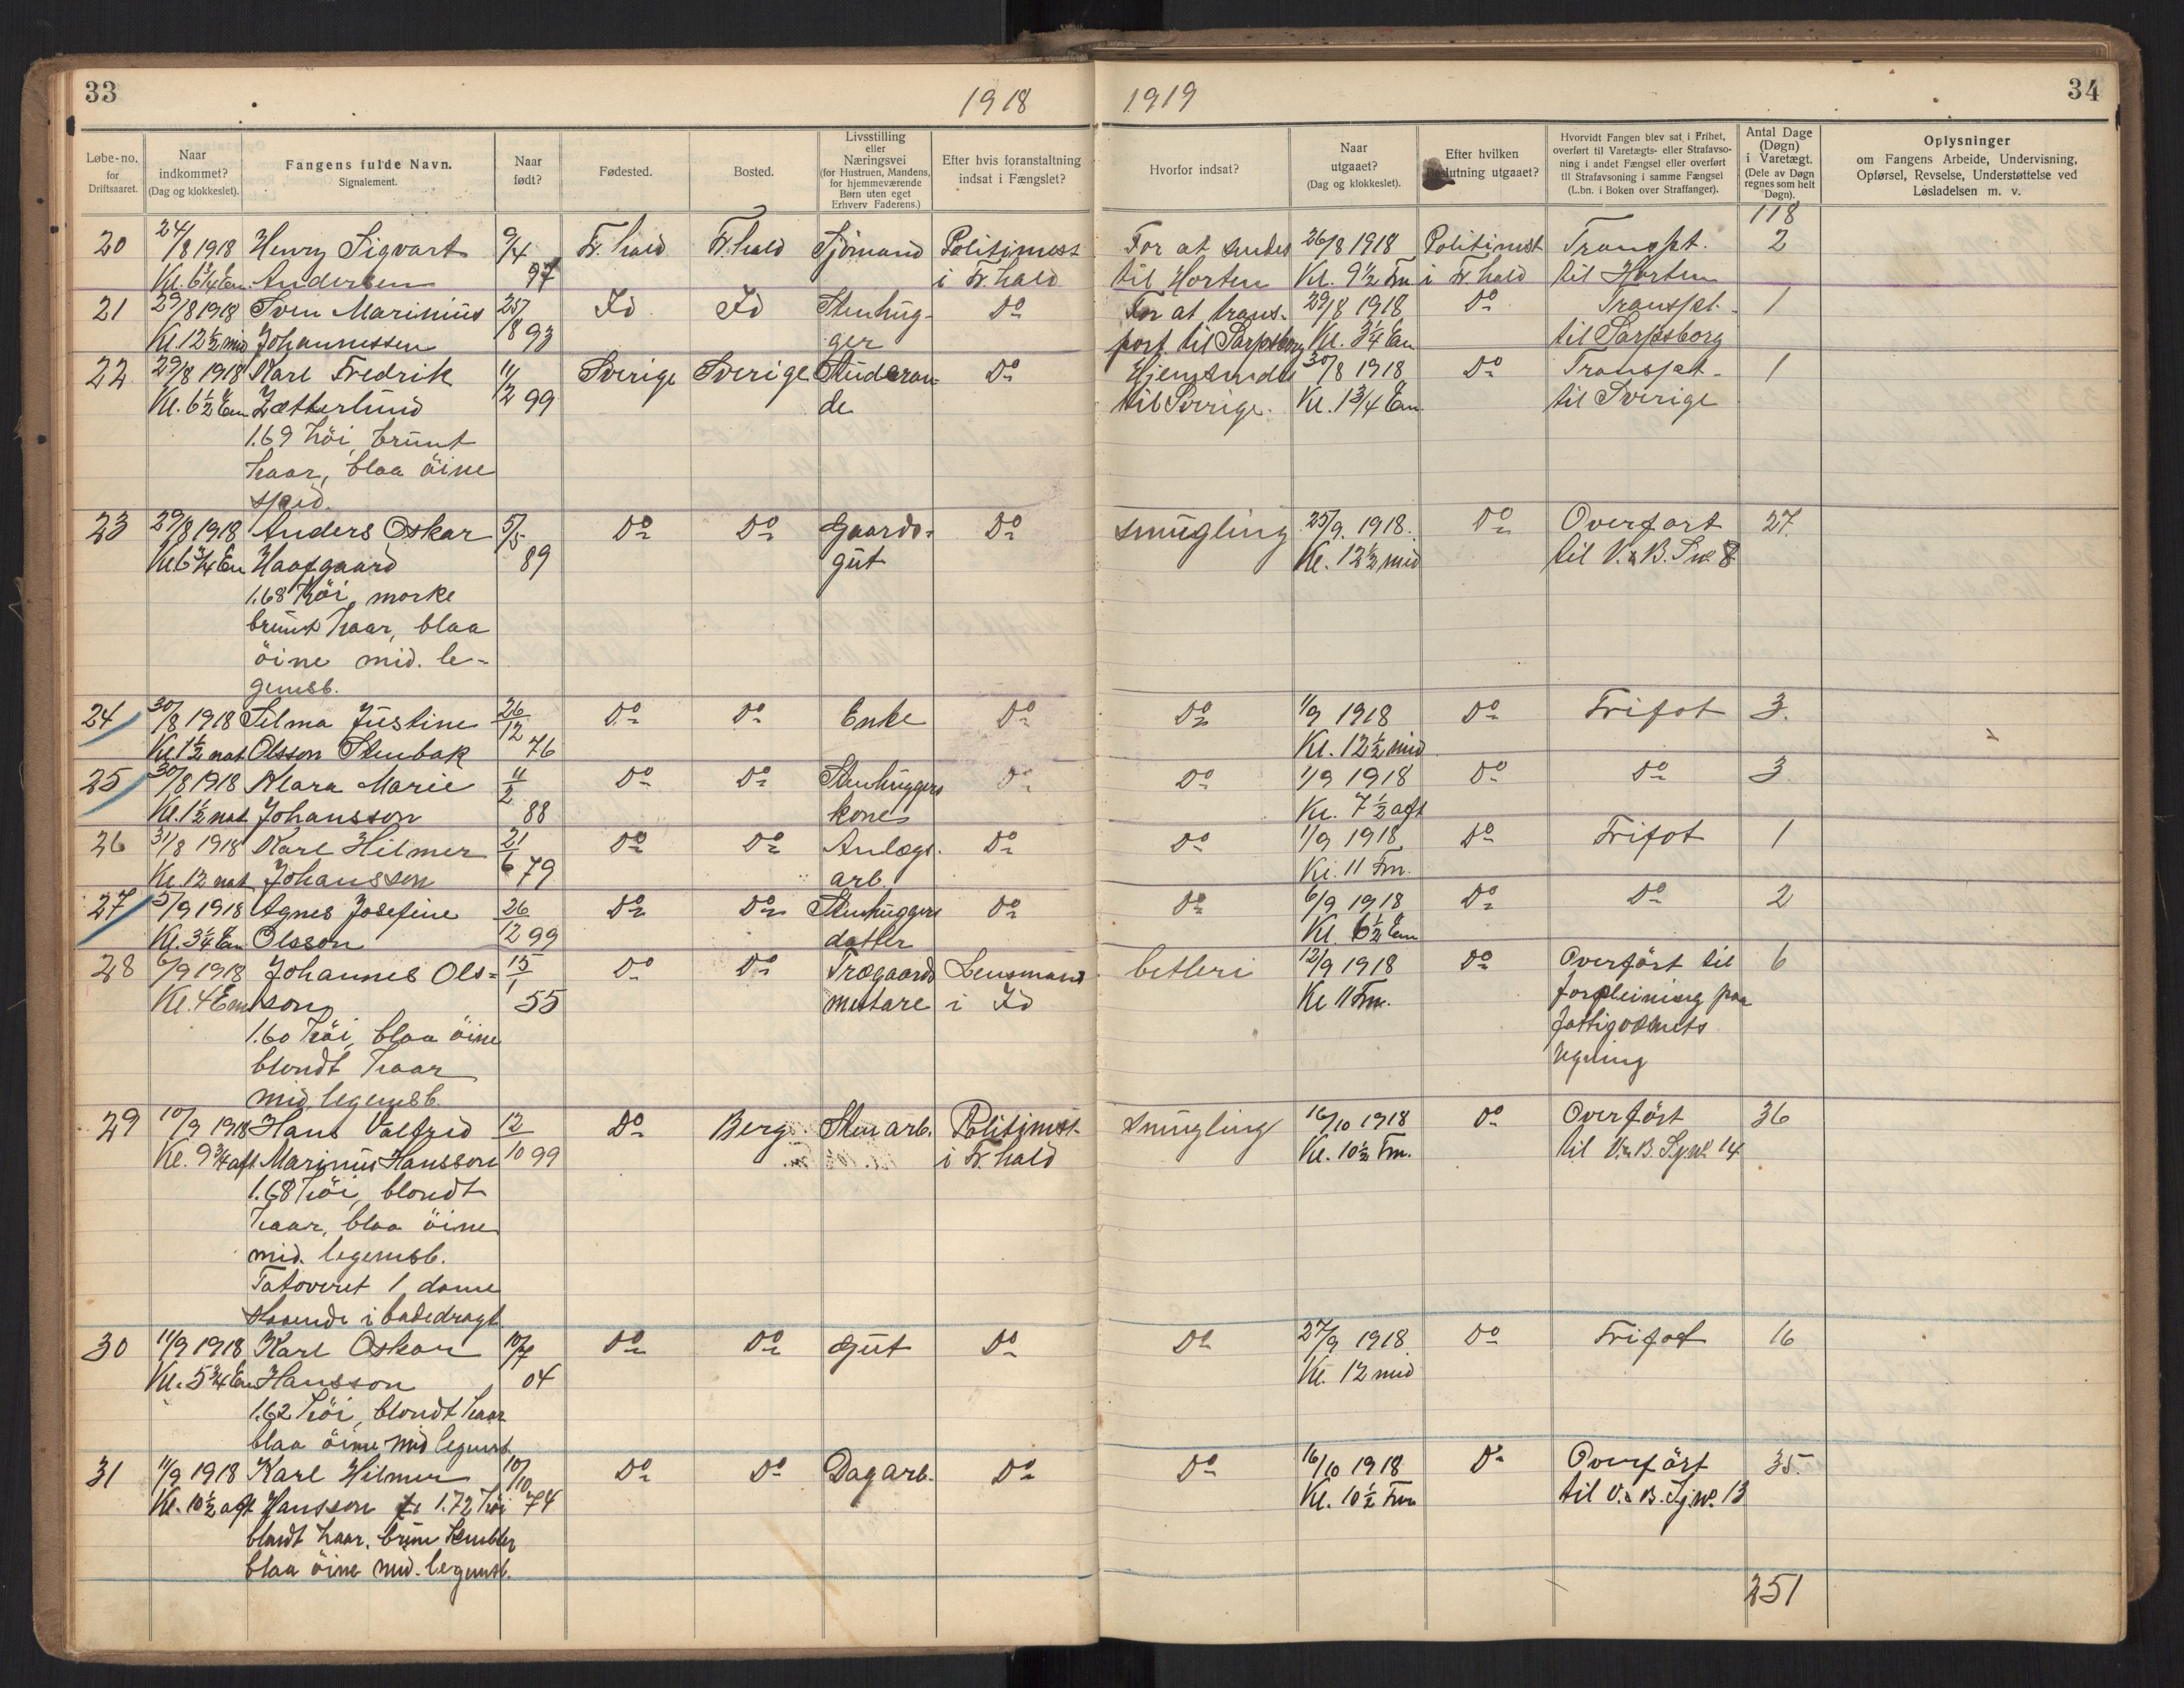 33
1918
1919
34
Løbe-no. for Driftsaaret.
Naar indkommet? (Dag og klokkeslet).
Fangens fulde Navn. Signalement.
Naar født?
Fødested.
Bosted.
Livsstilling eller Næringsvei (for Hustruen, Mandens, for hjemmeværende Børn uten eget Erhverv Faderens.)
Efter hvis foranstaltning indsat i Fængslet?
Hvorfor indsat?
Naar utgaaet? (Dag og klokkeslet).
Efter hvilken Beslutning utgaaet?
Hvorvidt Fangen blev sat i Frihet, overført til Varetægts- eller Strafavsoning i andet Fængsel eller overført til Strafavsoning i samme Fængsel (L.bn. i Boken over Straffanger).
Antal Dage (Døgn) i Varetægt. (Dele av Døgn regnes som helt Døgn).
Oplysninger om Fangens Arbeide, Undervisning, Opførsel, Revselse, Understøttelse ved Løsladelsen m. v.
118
20 24/8 1918 Henry Sigvart 9/4 Fr. hald Fr. hald Sjömand Politimest For at sendes 26/8 1918 Politimst Transpt. 2
Kl. 6 3/4 Em. Andersen 97 i Fr. hald til Horten Kl. 9 1/2 Fm. i Fr. hald til Horten
21 29/8 1918 Sven Marinius 25/8 Id Id Stenhug- Do For at trans- 29/8 1918 Do Transpt. 1
Kl. 12 1/2 mid Johannessen 93 ger port til Sarpsborg Kl. 3 1/4 Em til Sarpsborg
22 29/8 1918 Karl Fredrik 11/2 Sverige Sverige Studeran- Do Hjemsendes 30/8 1918 Do Transpt. 1
Kl. 6 1/2 Em Zetterlund 99 de til Sverige. Kl. 1 3/4 Em til Sverige
1.69 höi, brunt
haar, blaa öine
sped.
23 29/8 1918 Anders Oskar 5/5 Do Do Gaards- Do smugling 25/9 1918. Do Overfort 27.
Kl. 6 3/4 Em Haafgaard 89 gut Kl. 12 1/2 mid til V. & B. 8
1.68 höi, morke
brunt haar, blaa
öine mid. le-
gemsb.
24 30/8 1918 Selma Justine 26/12 Do Do Enke Do Do 1/9 1918 Do Frifot 3.
Kl. 1 1/2 nat Olsson Stenbak 76 Kl. 12 1/2 mid
25 30/8 1918 Klara Marie 11/2 Do Do Stenhuggers Do Do 1/9 1918 Do Do 3.
Kl. 1 1/2 nat Johansson 88 kone Kl. 7 1/2 aft
26 31/8 1918 Karl Hilmer 21/6 Do Do Anlægs- Do Do 1/9 1918 Do Frifot 1
Kl. 12 nat Johansson 79 arb. Kl. 11 Fm.
27 5/9 1918 Agnes Josefine 26/12 Do Do Stenhuggers Do Do 6/9 1918 Do Do 2
Kl. 3 1/4 Em Olsson 99 datter Kl. 6 1/2 Em
28 6/9 1918 Johannes Ols- 15/1 Do Do Trægaards Lensmand betleri 12/9 1918 Do Overført til 6
Kl. 4 Em son 55 mestare i Id Kl 11 Fm. forpleining paa
1.60 höi, blaa öine fattigvæsnets
blondt haar regning
mid. legemsb.
29 10/9 1918 Hans Valfrid 12/10 Do Berg Stenarb. Politimst. smugling 16/10 1918 Do Overført 36
Kl. 9 3/4 aft Marinius Hansson 99 i Fr. hald Kl. 10 1/2 Fm. til V. & B. 14
1.68 höi, blondt
haar, blaa öine
mid. legemsb.
Tatoveret 1 dame
staaende i badedragt.
30 11/9 1918 Karl Oskar 10/7 Do Do Gut Do Do 27/9 1918. Do Frifot 16
Kl. 5 3/4 Em Hansson 04 Kl. 12 mid
1.62 höi, blondt haar
blaa öine mid legemsb.
31 11/9 1918 Karl Hilmer 10/10 Do Do Dagarb. Do Do 16/10 1918 Do Overført 35.
Kl. 10 1/2 aft Hansson 1.72 höi 74 Kl. 10 1/2 Fm til V. & B. 13
blondt haar,
blaa öine mid. legemsb.
251